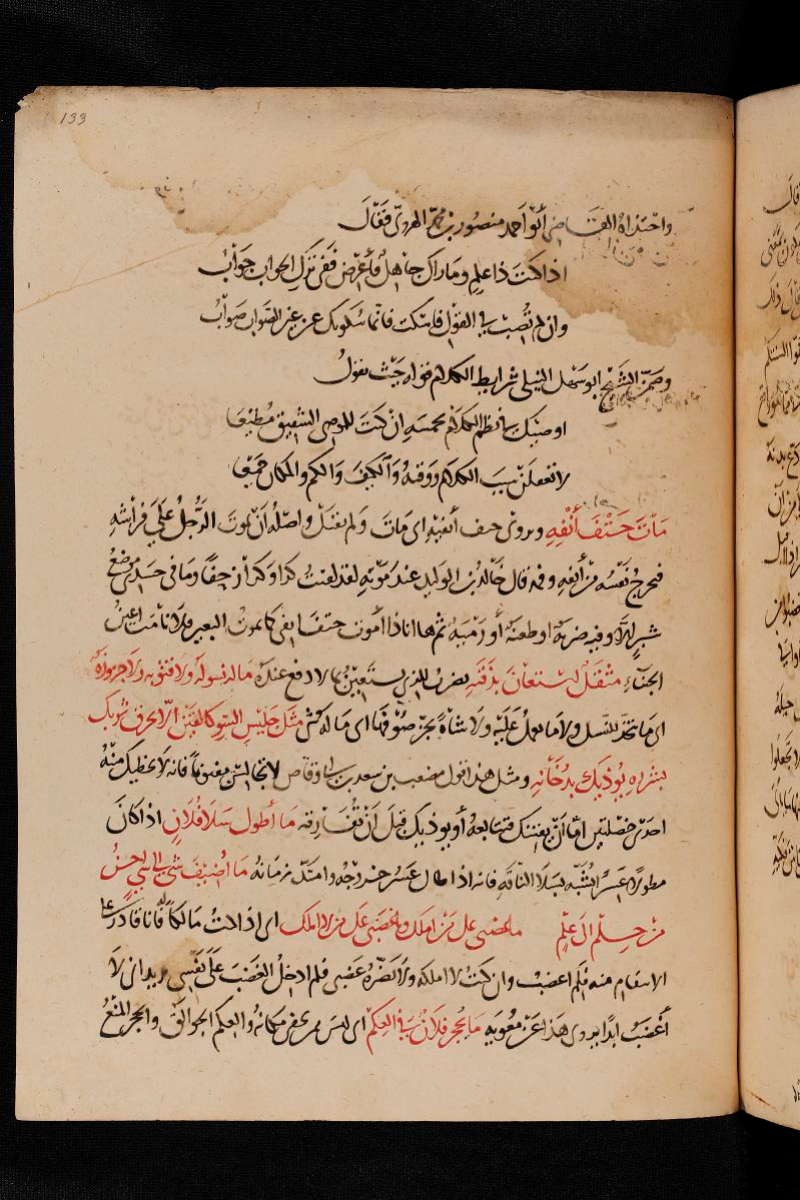 133
واحتذاه القاضى أبو أحمد منصور بن محمد الهروى فقال
اذا كنت ذا علم وماراك جاهل فأعرض ففى ترك الجواب جواب
وان لم تُصب فى القول فاسكت فانما سكوتك عن غير الصواب صواب
وضمن الشيخ ابو سهل النيلى شرايط الكلام قوله حيث يقول
اوصيك فى نظم الكلام بخمسة ان كنت للموصى الشفيق مطيعا
لا تغفلن سبب الكلام ووقته والكيف والكم والمكان جميعا
مات حتف أنفه ويروى حتف أنفيه اى مات ولم يقتل واصله أن يموت الرجل على فراشه
فيخرج نفسه من أنفه وفمه قال خالد بن الوليد عند موته لقد لقيت كذا وكذا زحفا وما فى جسدى موضع
شبر الا وفيه ضربة او طعنة أو رمية ثم ها انا ذا أموت حتف انفى كما يموت البعير فلا نامت اعين
الجبناء مثقل استعان بذقنه يضرب للذى يستعين بما لا دفع عنده ما له نسولة ولا قتوبة ولا جزوزة
اى ما يتخذ للنسل ولا ما يعمل عليه ولا شاة يجز صوفها اى ما له شىء مثل جليس السوء كالقين الا يحرق ثوبك
بشرره يوذيك بدخانه ومثل هذا قول مصعب بن سعد بن ابى وقاص لا تجالس مفتونا فانه لا يخطيك منه
احدى خصلتين اما أن يفتنك فتتابعه أو يوذيك قبل أن تفارقه ما أطول سلا فلان اذا كان
مطولا عسر يشبه بسلا الناقة فانه اذا طال عسر خروجه وامتد زمانه ما اضيف شىء الى شىء احسن
من حلم الى علم ما غضبى على من املك وما غضبى على من لا املك اى اذا كنت مالكا له فانا قادر على
الانتقام منه فلم اغضب وان كنت لا املكه ولا يضره غضبى فلم ادخل الغضب على نفسى يريد انى لا
أغضب ابدا يروى هذا عن معوية ما يحجر فلان فى العكم اى ليس ممن يخفى مكانه والعكم الجوالق والحجر المنع